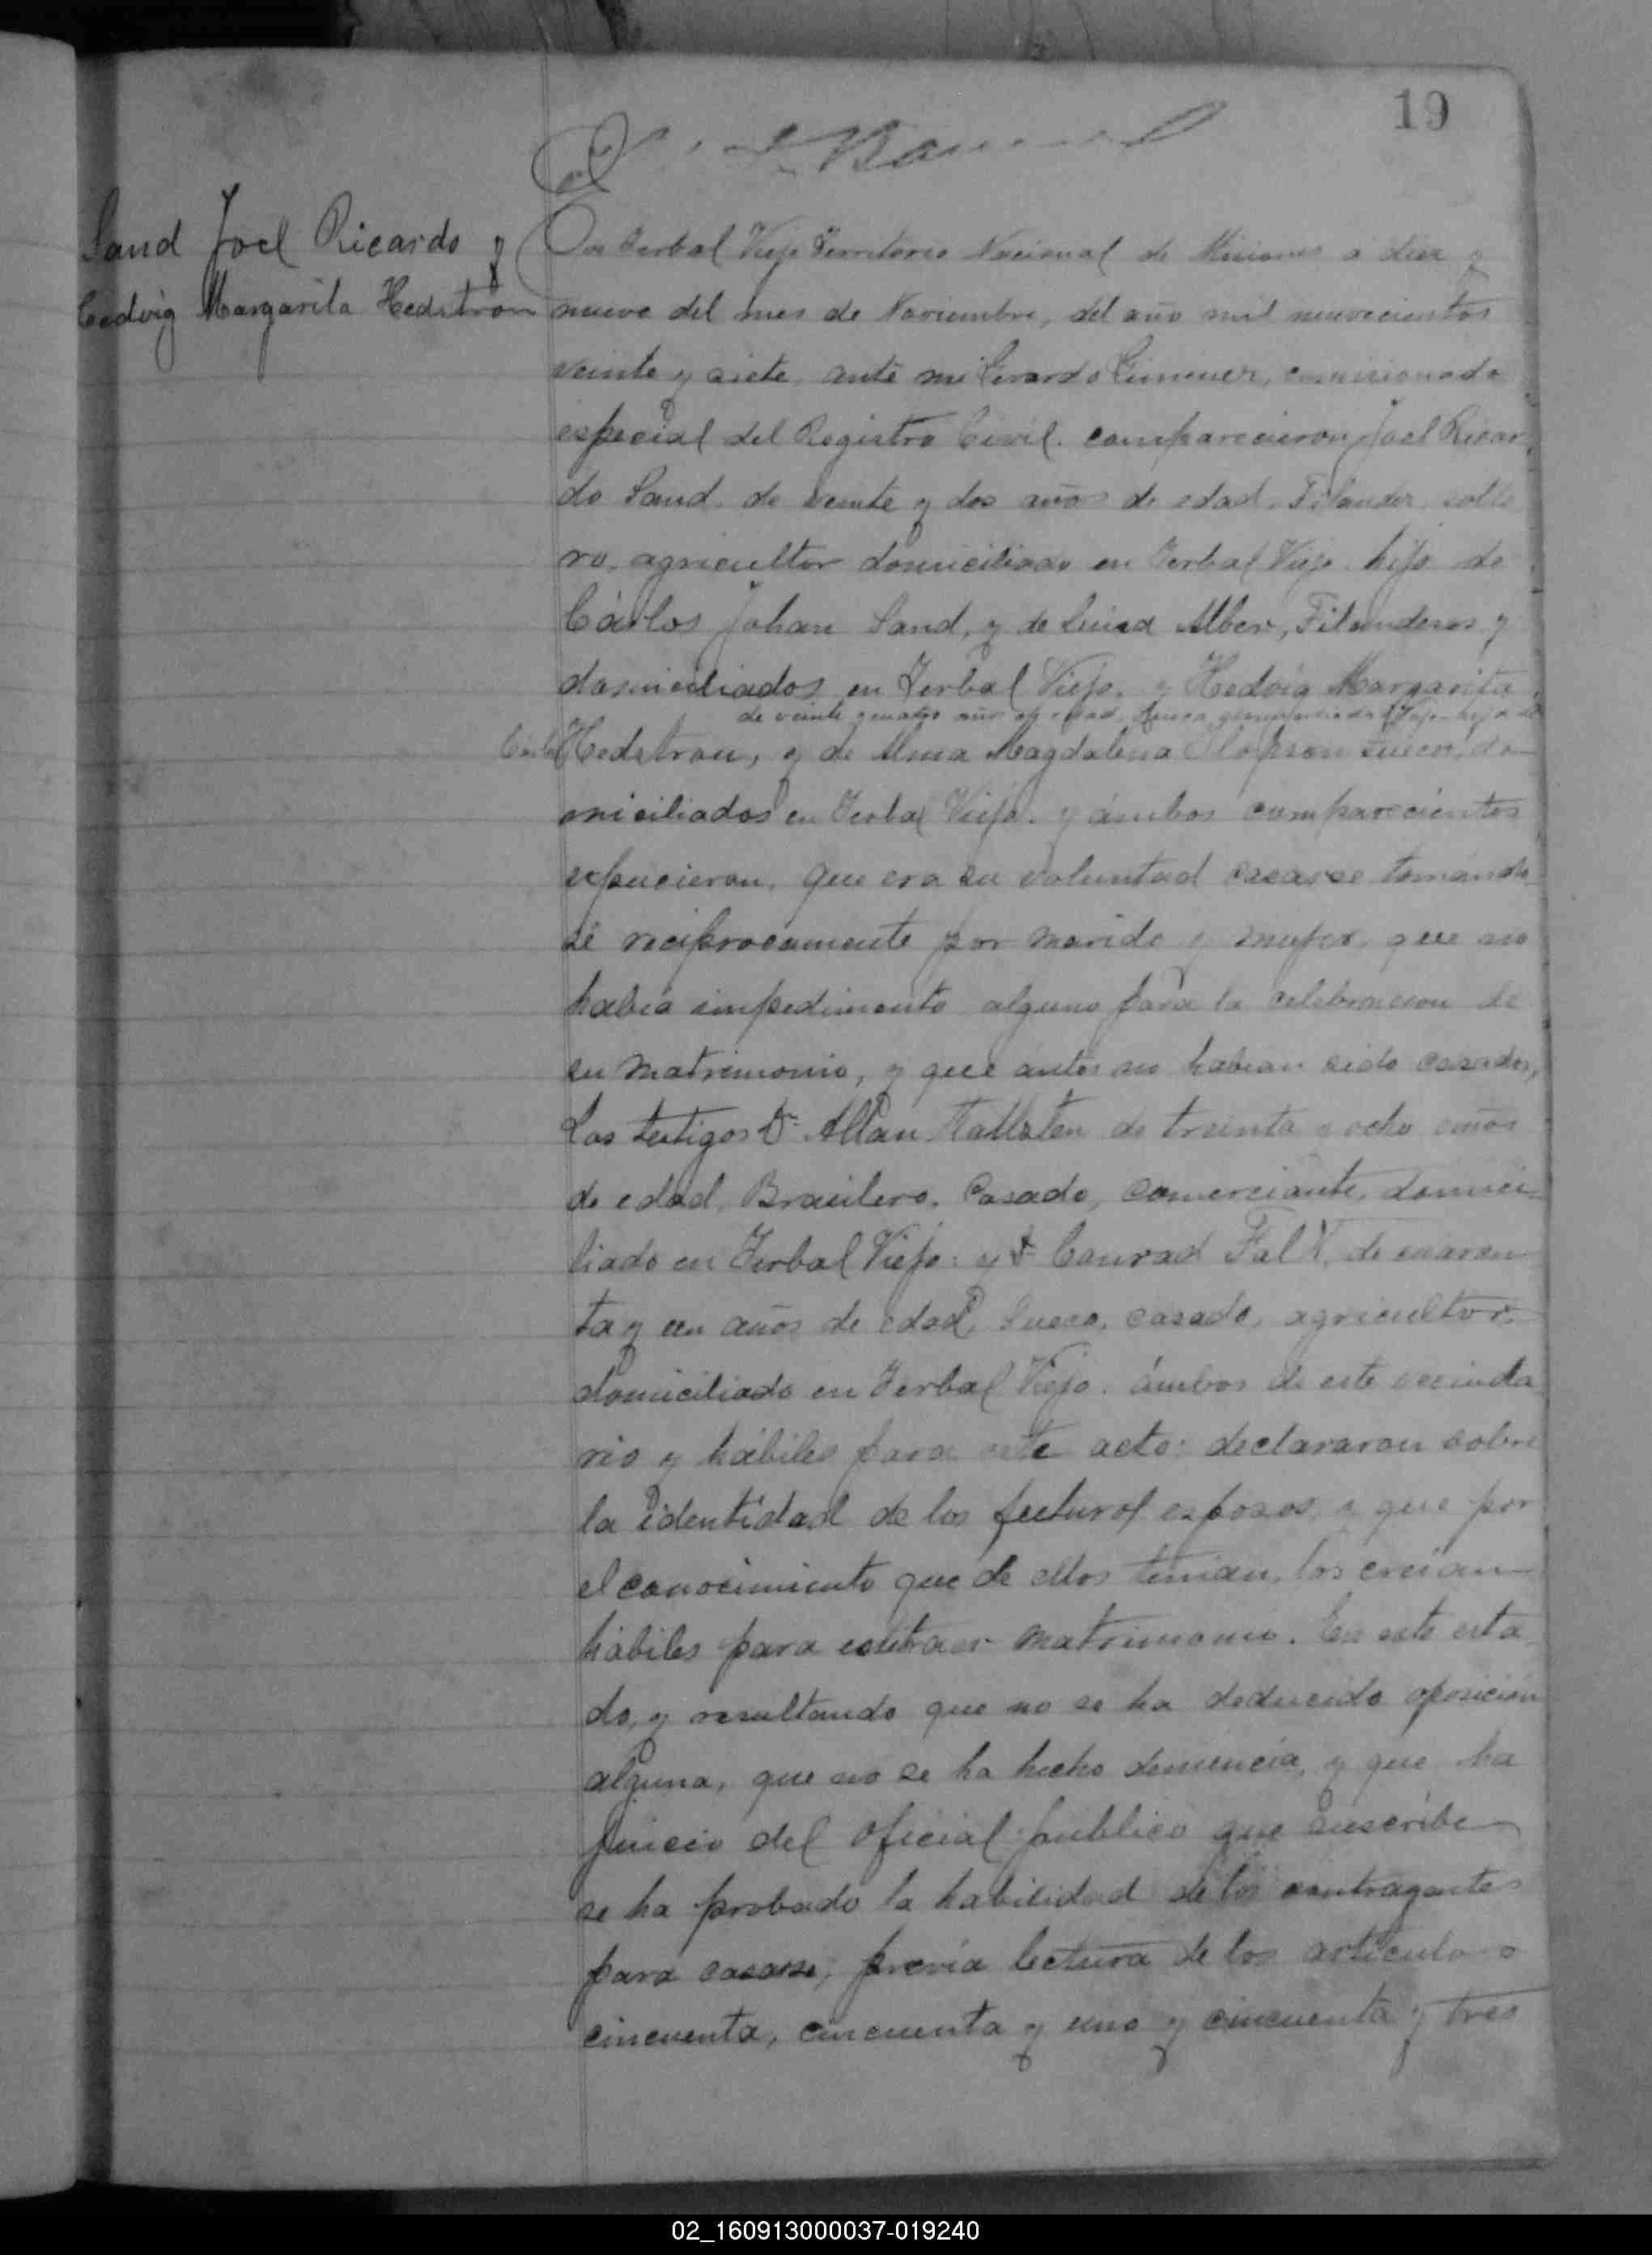 19
Sand Joel Ricardo y
Hedvig Margarita Hedstron
En Yerbal Viejo Territorio Nacional de Misiones a diez y
nueve del mes de Noviembre, del año mil novecientos
veinte y siete, ante mi Gerardo Gimenez, comisionado
especial del Registro Civil. comparecieron Joel Ricar
do Sand, de veinte y dos años de edad, Filander, solte
ro, agricultor domiciliado en Yerbal Viejo hijo de
Cárlos Johan Sand, y de Luisa Alber, Filanderos y
domiciliados en Yerbal Viejo. y Hedvig Margarita
de veinte y cuatro años de edad, Sueca Viejo hija de
Carlos Hedstron, y de Alma Magdalena do
miciliados en Yerbal Viejo. y ámbos comparecientes
espucieron, que era su voluntad casarse tomándo
sé reciprocamente por marido y mujer, que no
habia impedimento alguno para la celebracion de
su matrimonio, y que antes no habian sido casados,
Los testigos Dn. Allan de treinta y ocho años
de edad, Brasilero, Casado, comerciante, domici-
liado en Yerbal Viejo: y Dn Conrad Falk, de cuaren
ta y un años de edad, Sueco, casado, agricultor,
domiciliado en Yerbal Viejo. ámbos de este vecinda
rio y hábiles para este acto: declararon sobre
la identidad de los futuros esposos, y que por
el conocimiento que de ellos tenian, los creian
hábiles para contraer matrimonio. En este esta
do, y resultando que no se ha deducido oposición
alguna, que no se ha hecho denuncia, y que ha
juicio del oficial publico que suscribe
se ha probado la habilidad de los contragantes
para casarse, previa lectura de los articulos
cincuenta, cincuenta y uno y cincuenta y tres
02_160913000037-019240